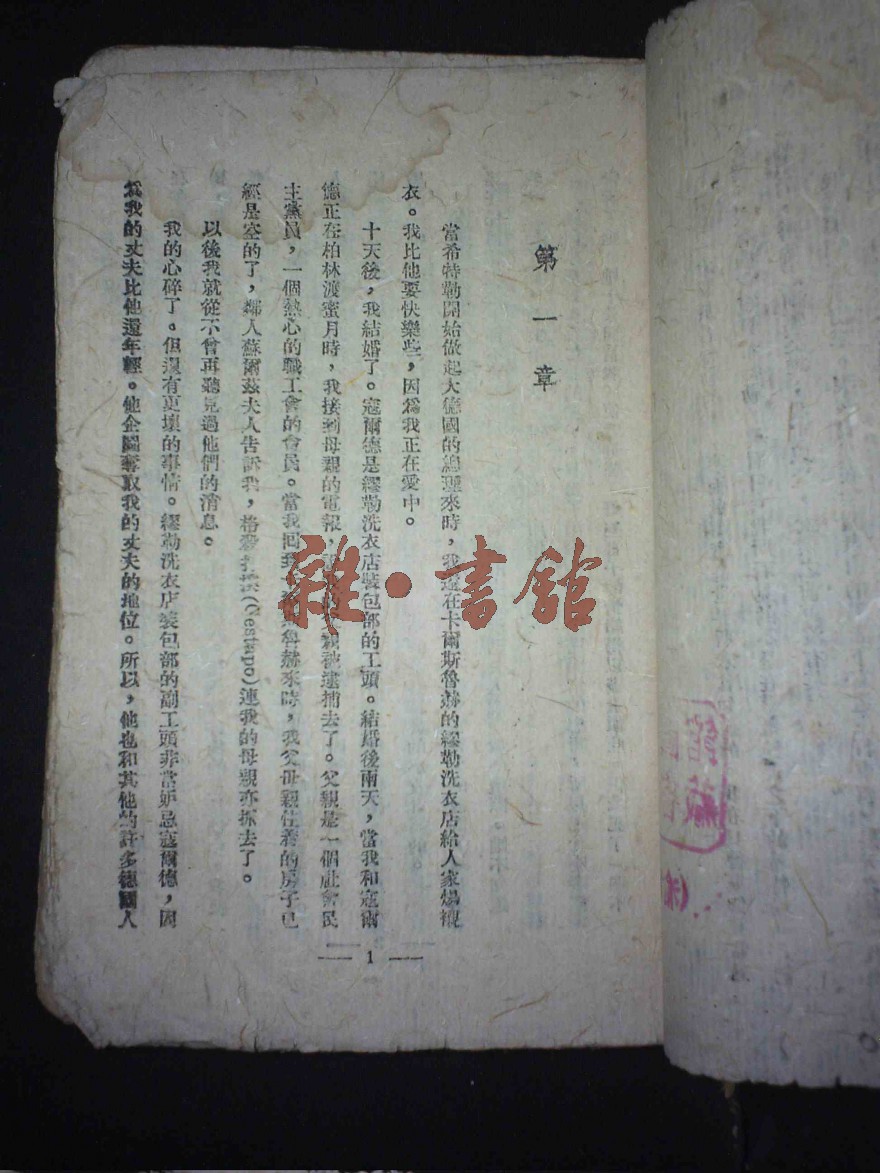 第一章
當希特勒開始做起大德國的總理來時，我還在卡爾斯魯赫的繆勒洗衣店給人家燙襯
衣。我比他要快樂些，因爲我正在愛中。
十天後，我結婚了。寇爾德是繆勒洗衣店裝包部的工頭。結婚後兩天，當我和寇爾
德正在柏林渡蜜月時，我接到母親的電報，親被逮捕去了。父親是一個社會民
主黨員，一個熱心的職工會的會員。當我回到魯赫來時，我父母親住着的房子已
經是空的了，鄰人蘇爾茲夫人告訴我，格殺(Gestapo)連我的母親亦抓去了。
以後我就從不曾再聽見過他們的消息。
我的心碎了。但還有更壞的事情。繆勒洗衣店裝包部的副工頭非常妒忌寇爾德，因
爲我的丈夫比他還年輕。他企圖奪取我的丈夫的地位。所以，他也和其他的許多德國人
— 1 —
雜·書館